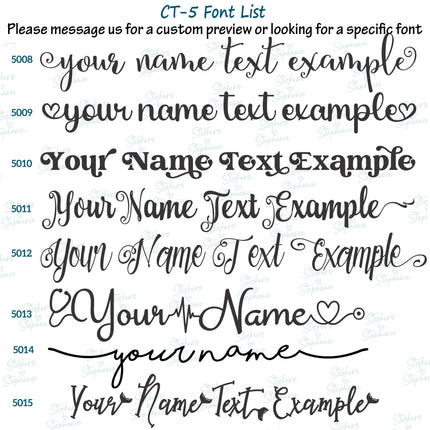 CT-5 Font List
Please message us for a custom preview or looking for a specific font
5008 your name text example
5009 your name text example
5010 Your Name Text Example
5011 Your Name Text Example
5012 Your Name Text Example
5013 Your Name
5014 your name
5015 Your Name Text Example